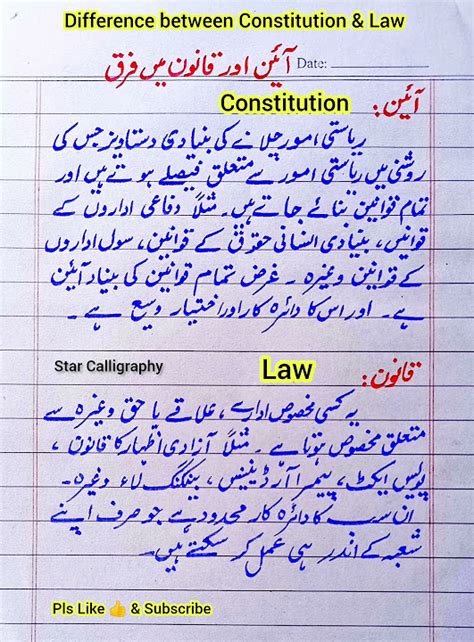 Difference between Constitution & Law
آئین اور قانون میں فرق Date:
آئین: Constitution
ریاستی امور چلانے کی بنیادی دستاویز جس کی
روشنی میں ریاستی امور سے متعلق فیصلے ہوتے ہیں اور
تمام قوانین بنائے جاتے ہیں۔ مثلاً دفاعی اداروں کے
قوانین، بنیادی انسانی حقوق کے قوانین، سول اداروں
کے قوانین وغیرہ۔ غرض تمام قوانین کی بنیاد آئین
ہے۔ اور اس کا دائرہ کار اور اختیار وسیع ہے۔
Star Calligraphy
قانون: Law
یہ کسی مخصوص ادارے، علاقے یا حق وغیرہ سے
متعلق مخصوص ہوتا ہے۔ مثلاً آزادی اظہار کا قانون،
پولیس ایکٹ، پیمرا آرڈیننس، بینکنگ لاء وغیرہ۔
ان سب کا دائرہ کار محدود ہے جو صرف اپنے
شعبہ کے اندر ہی عمل کر سکتے ہیں۔
Pls Like 👍 & Subscribe